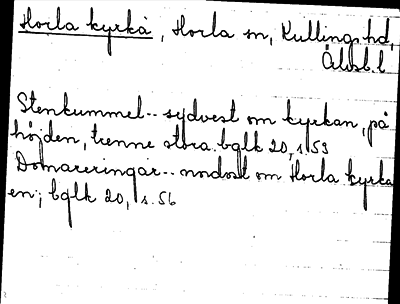 Horla kyrka, Horla sn, Kullings hd,
Älvsb. l
Stenkummel.. sydvest om kyrkan, på
höjden, trenne stora. bglk 20, s. 53
Domareringar.. nordost om Horla kyrka
en; bglk 20, s. 56